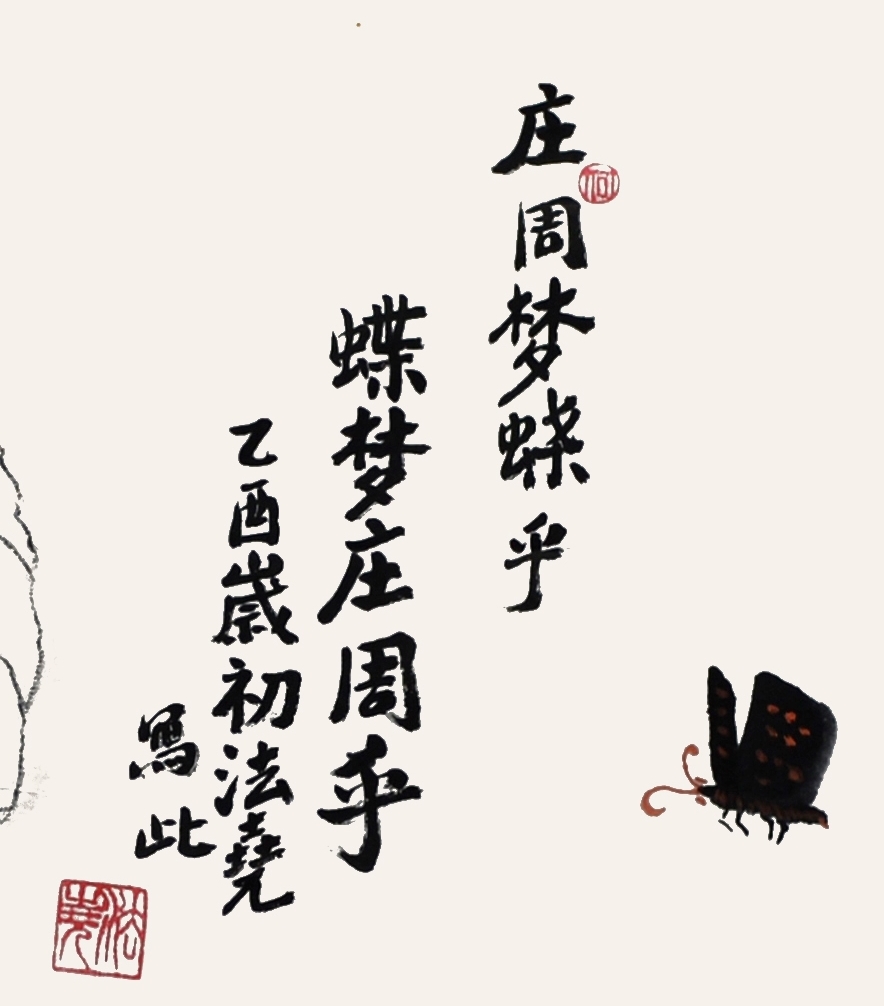 庄周梦蝶乎
蝶梦庄周乎
乙酉歲初法堯
寫此
何
法堯